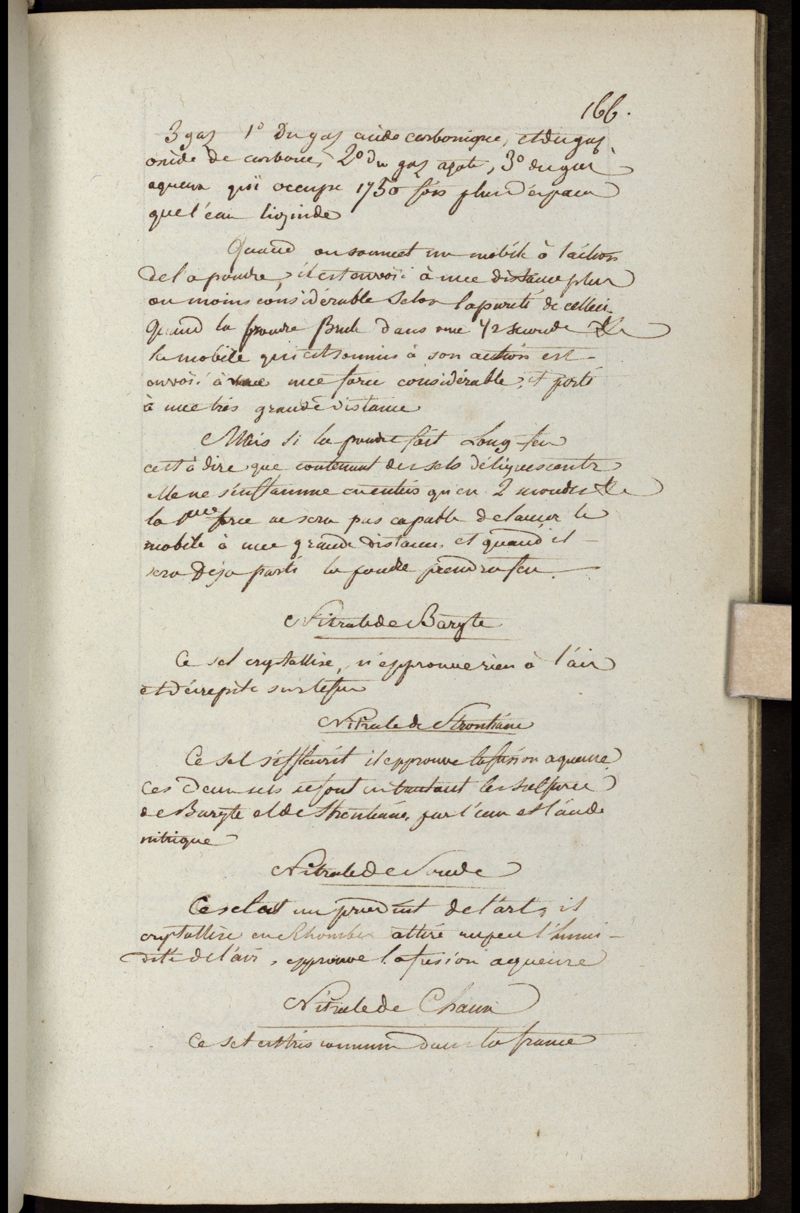 166.
3 gaz 1° Du gaz acide carbonique, et du gaz
oxide de carbone, 2° du gaz azote, 3° du gaz
aqueux qui occupe 1750 fois plus d'espace
que l'eau liquide
Quand on soumet un mobile à l'action
de la poudre, il est envoïé à une distance plus
ou moins considérable selon la pureté de celle ci
Quand la poudre Brule dans une 1/2 seconde
le mobile qui est soumis à son action est
envoïé à une force considérable, et porté
à une très grande distance
Mais si la poudre fait Long-feu
c'est à dire que contenant des sels déliquescents
elle ne s'enflamme en entier qu'en 2 secondes
la 1ere force ne sera pas capable de lancer le
mobile à une grande distance, et quand il
sera Déja parti la poudre prendra feu.
Nitrate de Baryte
Ce sel crystallise, n'epprouve rien à l'air
et décrepite sur le feu
Nitrate de Strontiane
Ce sel s'effleurit il epprouve la fusion aqueuse
Ces Deux sels se font en traitant les sulfures
de Baryte et de Strontiane, par l'eau et l'acide
nitrique
Nitrate de Soude
Ce sel est un produit de l'art, il
crystallise en Rhombes attire un peu l'humi-
dité de l'air, epprouve la fusion aqueuse
Nitrate de Chaux
Ce sel est très commun dans la france